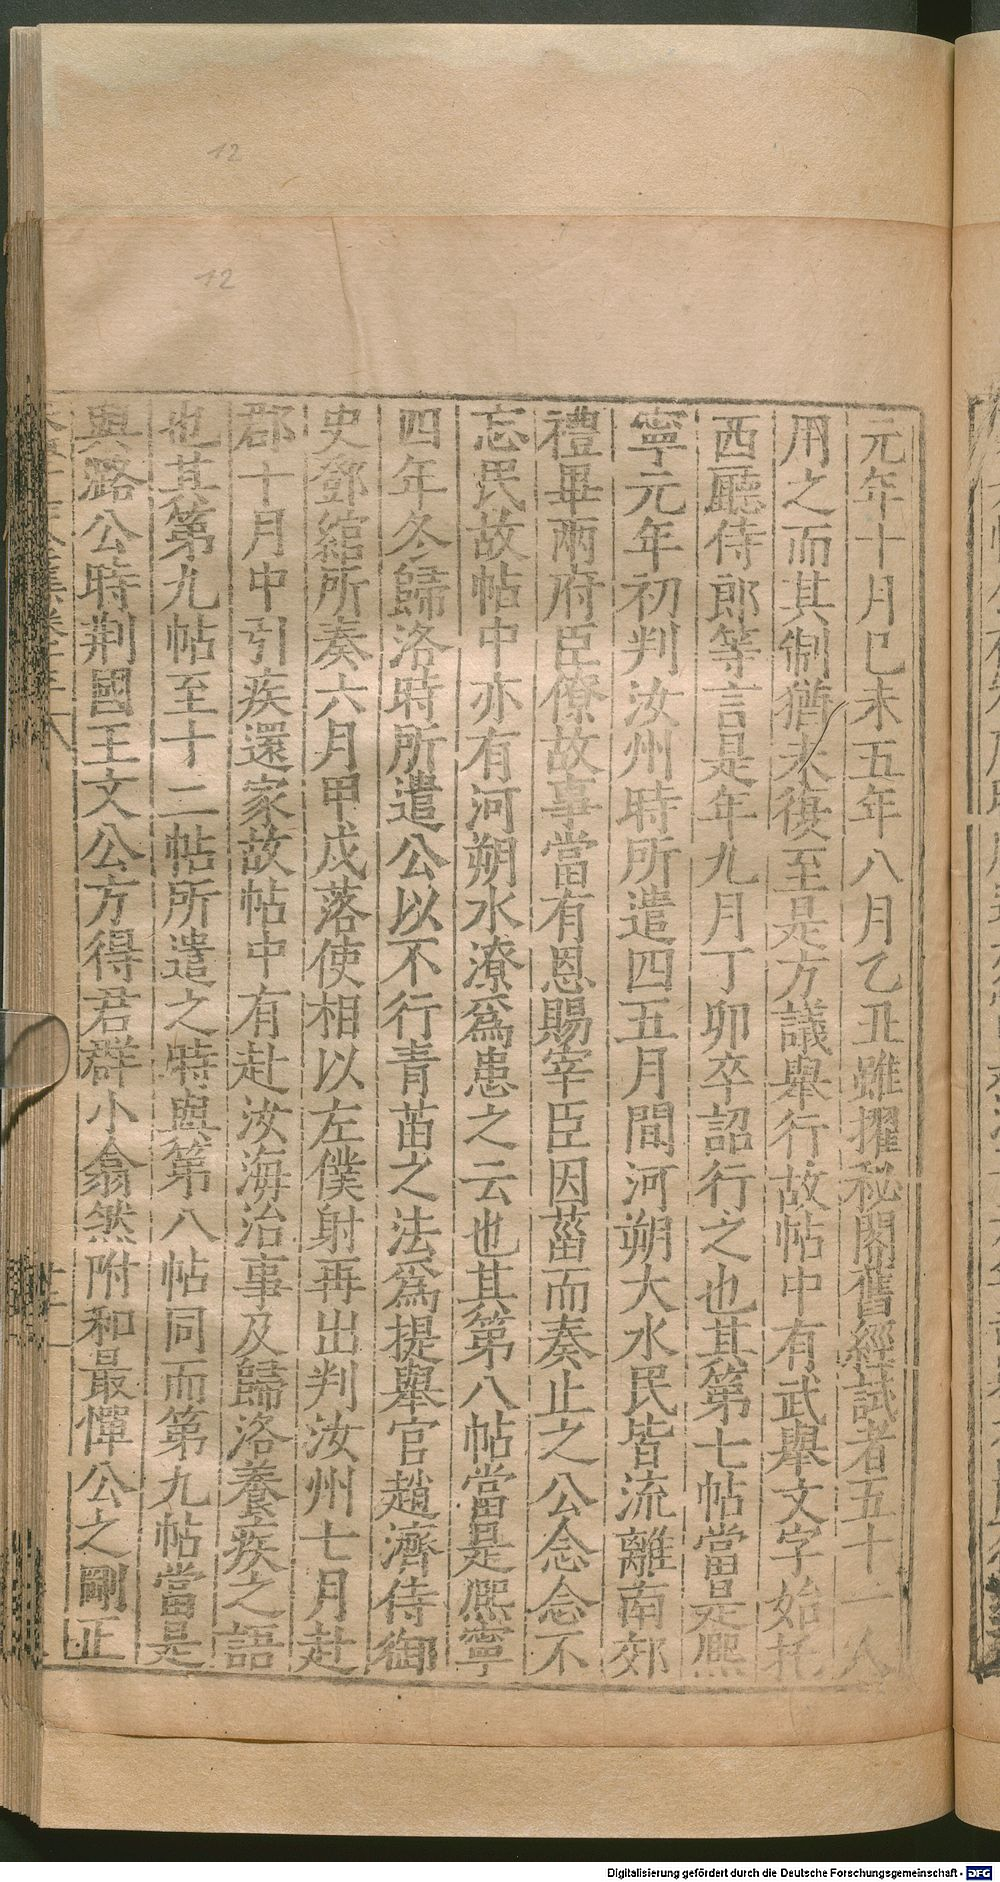 12
12
元年十月巳未五年八月乙丑雖擢秘閣舊經試者五十一人
用之而其制猶未復至是方議舉行故帖中有武舉文字始托
西廳侍郎等言是年九月丁卯卒詔行之也其第七帖當是熈
寧元年初判汝州時所遣四五月間河朔大水民皆流離南郊
禮畢兩府臣僚故事當有恩賜宰臣因葘而奏止之公念念不
忘民故帖中亦有河朔水潦爲患之云也其第八帖當是熈寧
四年冬歸洛時所遣公以不行青苗之法爲提舉官趙濟侍御
史鄧綰所奏六月甲戌落使相以左僕射再出判汝州七月赴
郡十月中引疾還家故帖中有赴汝海治事及歸洛養疾之語
也其第九帖至十二帖所遣之時與第八帖同而第九帖當是
與潞公時荆國王文公方得君群小翕然附和最憚公之剛正
Digitalisierung gefördert durch die Deutsche Forschungsgemeinschaft - DFG